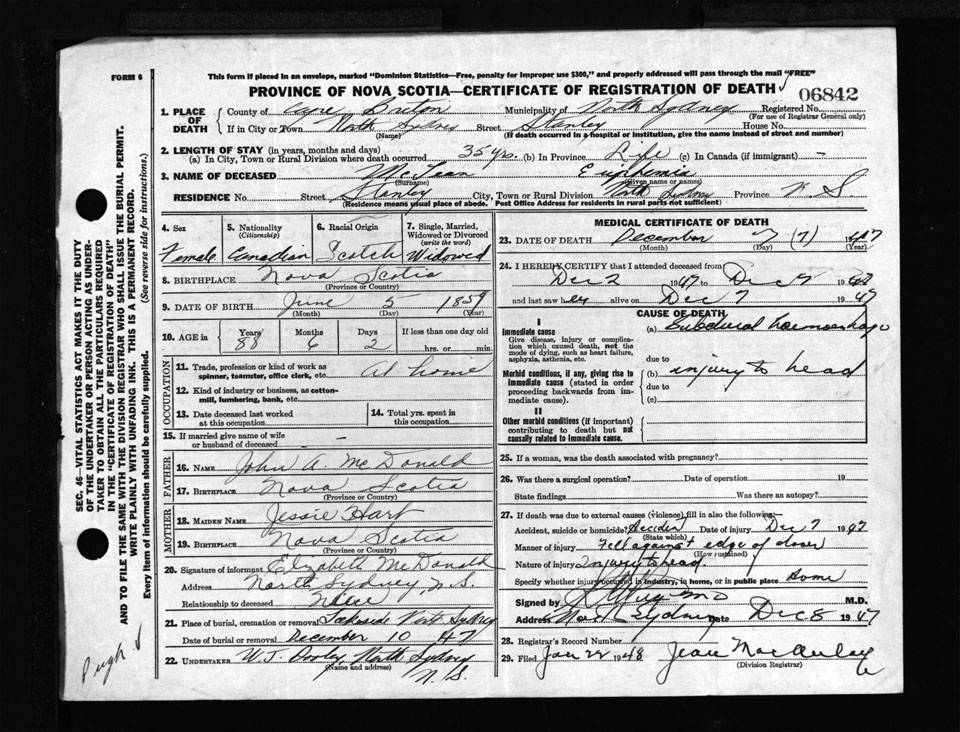 FORM 6
This form if placed in an envelope, marked "Dominion Statistics—Free, penalty for improper use $300," and properly addressed will pass through the mail "FREE"
PROVINCE OF NOVA SCOTIA—CERTIFICATE OF REGISTRATION OF DEATH
06842
1. PLACE OF DEATH
County of Cape Breton Municipality of North Sydney Registered No.
(For use of Registrar General only)
If in City or Town North Sydney Street Stanley House No.
(Name) (If death occurred in a hospital or institution, give the name instead of street and number)
2. LENGTH OF STAY (in years, months and days)
(a) In City, Town or Rural Division where death occurred 35 yrs. (b) In Province Life (c) In Canada (if immigrant) –
3. NAME OF DECEASED McLean Euphemia
(Surname) (Given name or names)
RESIDENCE No. Street Stanley City, Town or Rural Division North Sydney Province N. S.
(Residence means usual place of abode. Post Office Address for residents in rural parts not sufficient)
4. Sex
Female
5. Nationality
(Citizenship)
Canadian
6. Racial Origin
Scotch
7. Single, Married, Widowed or Divorced
(write the word)
Widowed
8. BIRTHPLACE Nova Scotia
(Province or Country)
9. DATE OF BIRTH June 5 1859
(Month) (Day) (Year)
10. AGE in Years Months Days If less than one day
88 6 2 hrs. or min.
OCCUPATION
11. Trade, profession or kind of work as spinner, teamster, office clerk, etc. At home
12. Kind of industry or business, as cotton-mill, lumbering, bank, etc.
13. Date deceased last worked at this occupation
14. Total yrs. spent in this occupation
15. If married give name of wife or husband of deceased –
FATHER
16. NAME John A. McDonald
17. BIRTHPLACE Nova Scotia
(Province or Country)
MOTHER
18. MAIDEN NAME Jessie Hart
19. BIRTHPLACE Nova Scotia
(Province or Country)
20. Signature of informant Elizabeth McDonald
Address North Sydney, N. S.
Relationship to deceased Niece
21. Place of burial, cremation or removal Lakeside North Sydney
Date of burial or removal December 10 47
22. UNDERTAKER W. J. Dooley North Sydney
(Name and address) N. S.
MEDICAL CERTIFICATE OF DEATH
23. DATE OF DEATH December 7 (7) 1947
(Month) (Day) (Year)
24. I HEREBY CERTIFY that I attended deceased from
Dec 2 1947 to Dec 7 1947
and last saw her alive on Dec 7 1947
CAUSE OF DEATH
I
Immediate cause (a) Subdural haemorrhage
Give disease, injury or complication which caused death, not the mode of dying, such as heart failure, asphyxia, asthenia, etc.
due to
Morbid conditions, if any, giving rise to immediate cause (stated in order proceeding backwards from immediate cause).
(b) injury to head
due to
(c)
II
Other morbid conditions (if important) contributing to death but not causally related to immediate cause.
25. If a woman, was the death associated with pregnancy?
26. Was there a surgical operation? Date of operation 19
State findings Was there an autopsy?
27. If death was due to external causes (violence) fill in also the following:—
Accident, suicide or homicide? Date of injury Dec 7 1947
(State which)
Manner of injury Fell against edge of door
(How sustained)
Nature of injury Injury to head.
Specify whether injury occurred in industry, in home, or in public place Home
Signed by M.D.
Address North Sydney Date Dec 8 1947
28. Registrar's Record Number
29. Filed Jan 22 1948 Jean MacAulay
(Division Registrar)
SEC. 46—VITAL STATISTICS ACT MAKES IT THE DUTY OF THE UNDERTAKER OR PERSON ACTING AS UNDERTAKER TO OBTAIN ALL THE PARTICULARS REQUIRED IN THE "CERTIFICATE OF REGISTRATION OF DEATH"
AND TO FILE THE SAME WITH THE DIVISION REGISTRAR WHO SHALL ISSUE THE BURIAL PERMIT.
WRITE PLAINLY WITH UNFADING INK. THIS IS A PERMANENT RECORD.
Every item of information should be carefully supplied. (See reverse side for instructions.)
Pugh